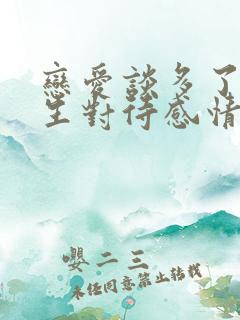 戀愛談多了
生對待感情
嚶二三
未經同意禁止轉載